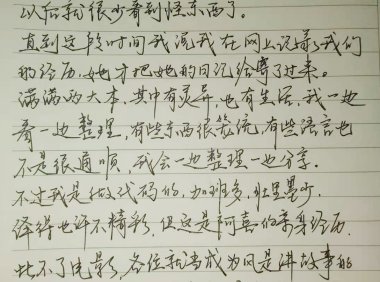 以后就很少看到怪东西了。
直到这段时间我混我在网上说影我们
的经历，她才把她的日记给寄了过来。
满满的大本，其中有灵异，也有生活，我一边
看一边整理，有些东西很笼流，有些语言也
不是很通顺，我会一边整理一边分享。
不过我是做代码的，加班多，肚里墨少，
绎得也许不精彩，但这是阿喜的亲身经历，
比不了电影，各位就当成为风是讲故事的